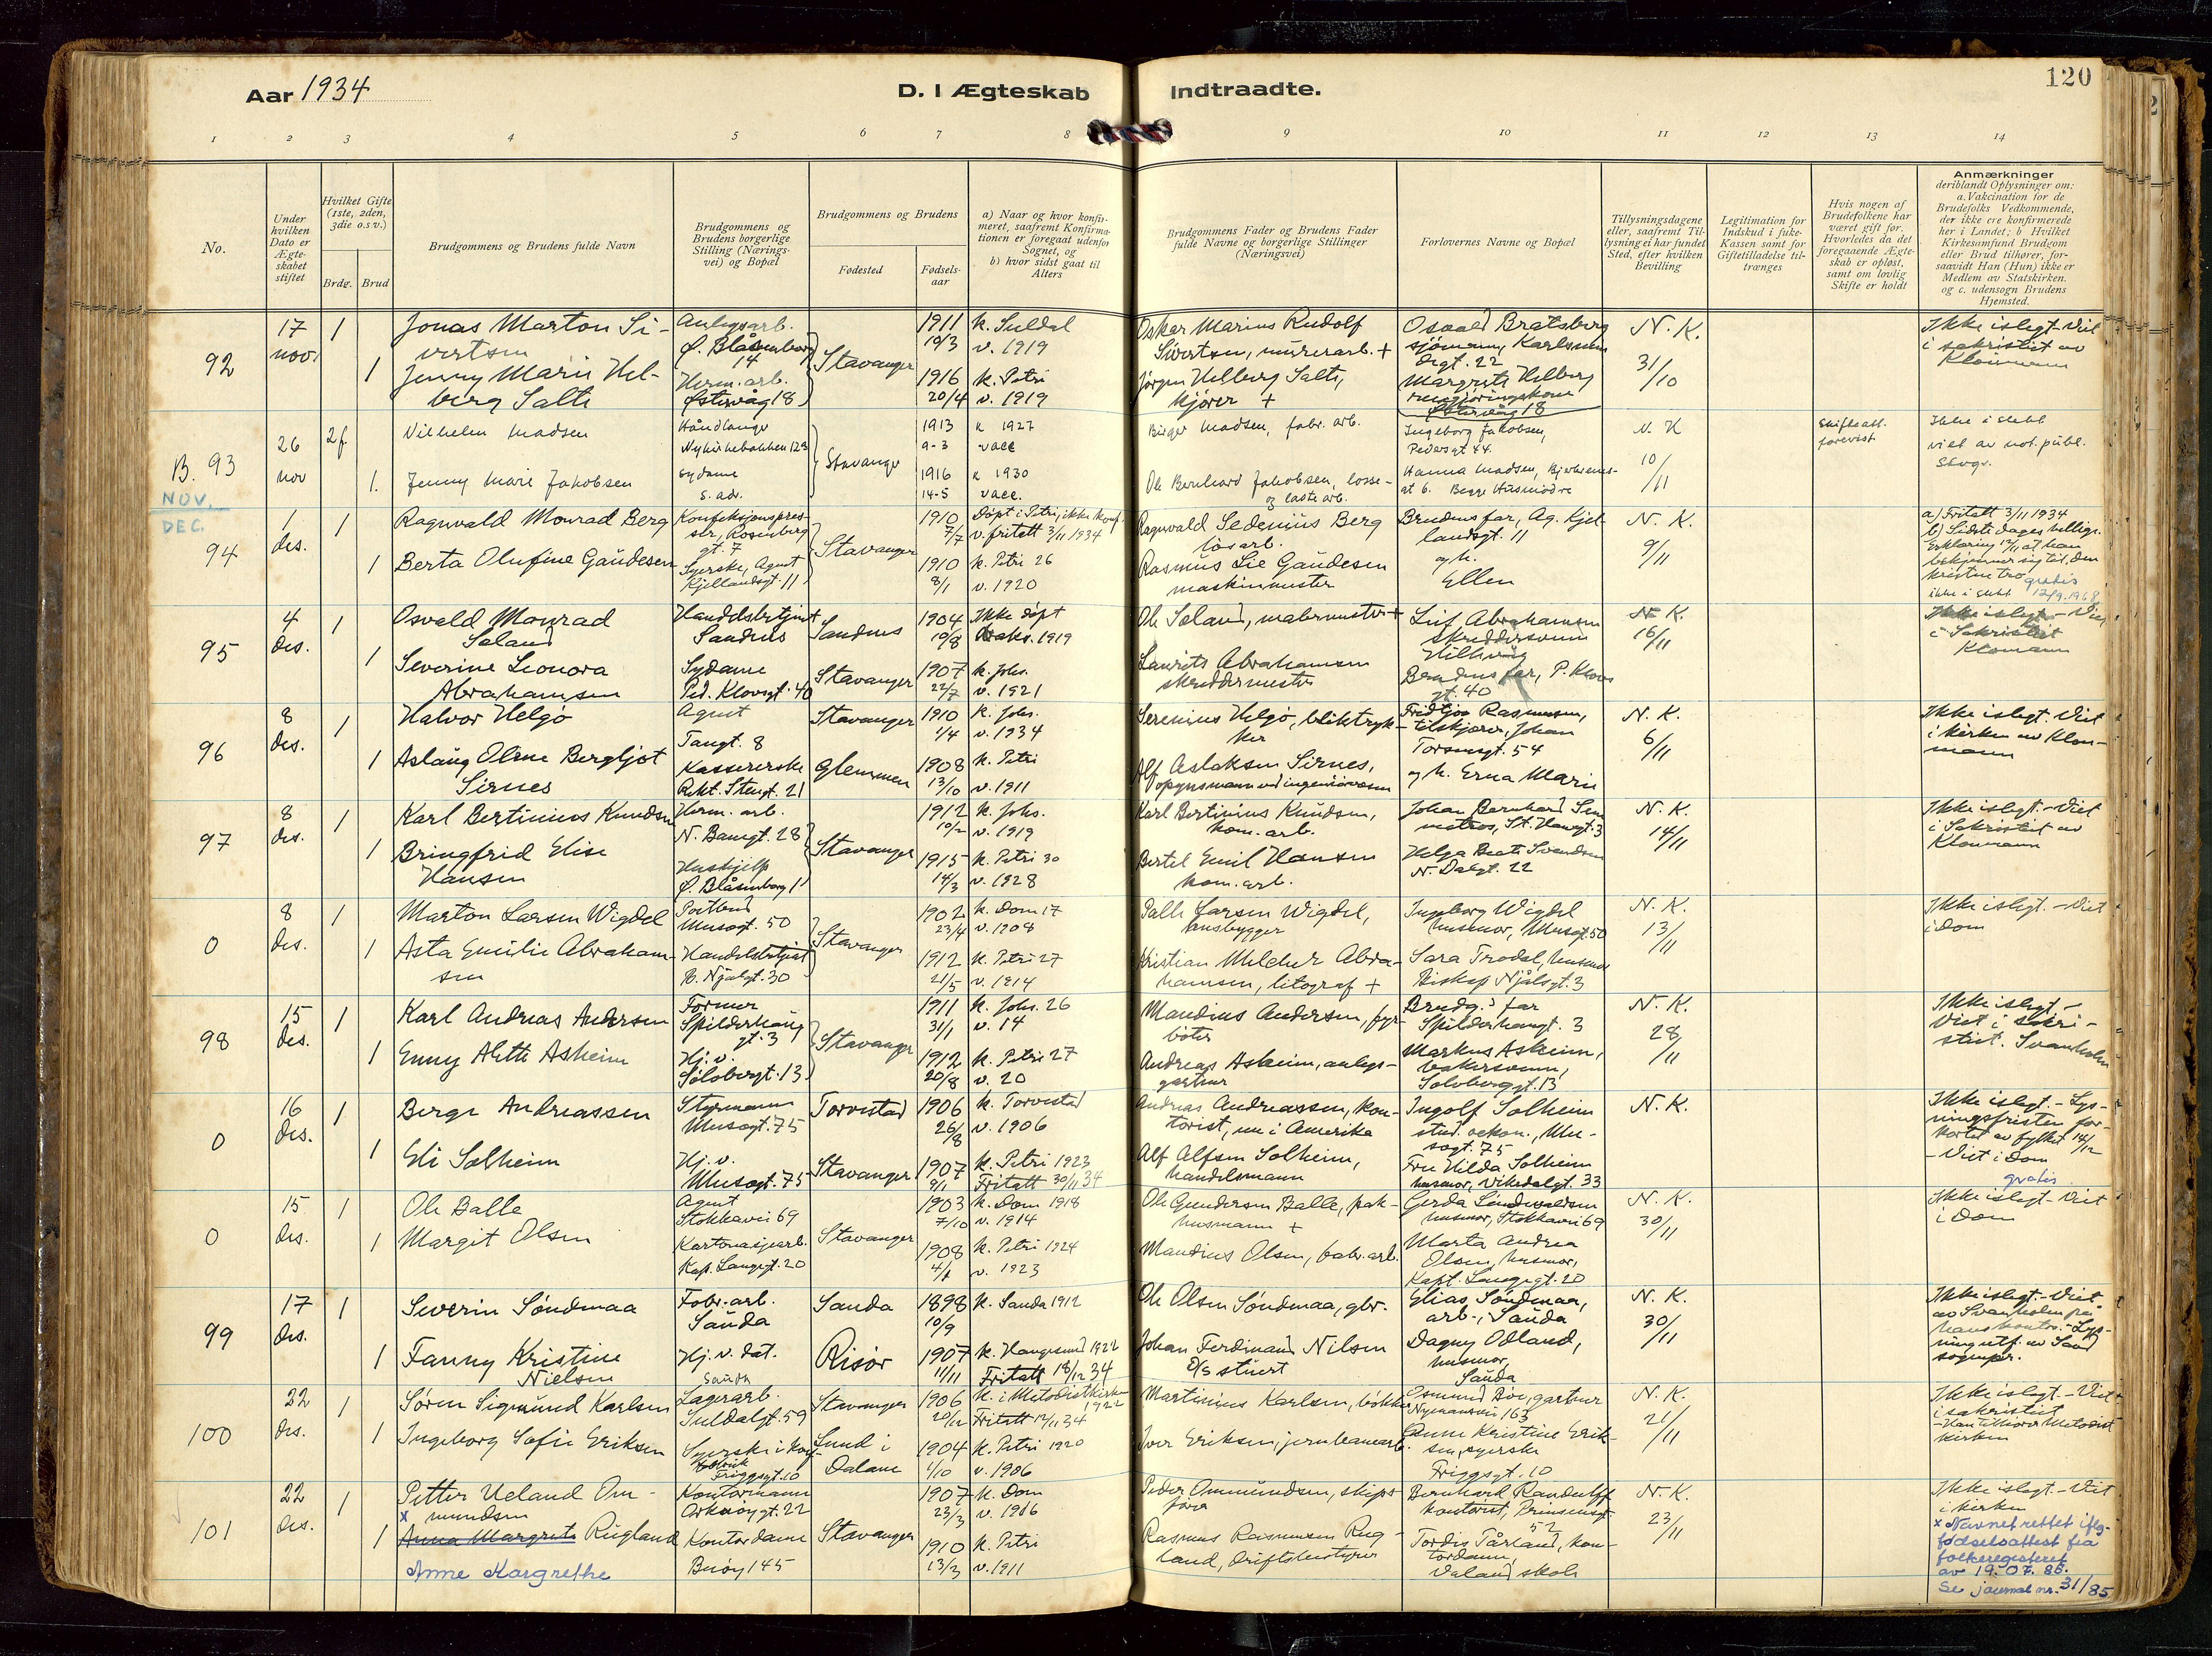 Aar 1934
D. I Ægteskab
Indtraadte.
120
1 2 3 4 5 6 7 8 9 10 11 12 13 14
No.
Under hvilken Dato er Ægteskabet stiftet
Hvilket Gifte (1ste, 2den, 3die o.s.v.)
Brdg. Brud
Brudgommens og Brudens fulde Navn
Brudgommens og Brudens borgerlige Stilling (Næringsvei) og Bopæl
Brudgommens og Brudens
Fødested
Fødselsaar
a) Naar og hvor konfirmeret, saafremt Konfirmationen er foregaat udenfor Sognet, og
b) hvor sidst gaat til Alters
Brudgommens Fader og Brudens Fader fulde Navne og borgerlige Stillinger (Næringsvei)
Forlovernes Navne og Bopæl
Tillysningsdagene eller, saafremt Tillysning ei har fundet Sted, efter hvilken Bevilling
Legitimation for Indskud i Enke-Kassen samt for Giftetilladelse tiltrænges
Hvis nogen af Brudefolkene har været gift før. Hvorledes da det foregaaende Ægteskab er opløst, samt om lovlig Skifte er holdt
Anmærkninger
deriblandt Oplysninger om: a. Vakcination for de Brudefolks Vedkommende, der ikke ere konfirmerede her i Landet; b Hvilket Kirkesamfund Brudgom eller Brud tilhører, forsaavidt Han (Hun) ikke er Medlem av Statskirken. og c. udensogn Brudens Hjemsted.
92
17 nov.
1
Jonas Marton Sivertsen
Anlegsarb.
Ø. Blåsenborg 14
Stavanger
1911 19/3
k. Suldal
v. 1919
Oskar Marius Rudolf Sivertsen, murerarb. +
Osvald Bratsberg
sjømann, Karlsminnegt. 22
N. K.
31/10
Ikke i slegt - Viet
i sakristiet av
Kloumann
1
Jenny Marie Helberg Salte
Herm. arb.
Østervåg 18
1916 20/4
k. Petri
v. 1919
Jørgen Helberg Salte,
kjører +
Margrete Helberg
rengjøringskone
Østervåg 18
B. 93
26 nov
2 f.
Vilhelm Madsen
Håndlanger
Nykirkebakken 123
Stavanger
1913 9-3
k 1927
vacc
Birger Madsen, fabr. arb.
Ingeborg Jakobsen,
Pedersgt 44.
N. K
10/11
Skifteatt. forevist
Ikke i slekt
viet av not. publ.
Stvgr.
1.
Jenny Marie Jakobsen
Sydame
s. adr.
1916 14-5
k 1930
vacc.
Ole Bernhard Jakobsen, losse-
og laste arb.
Hanna Madsen, Bjerkrems-
gt 6. Begge Husmødre
NOV.
DEC.
94
1 des.
1
Ragnvald Monrad Berg
Konfeksjonspresser, Rosenberg
gt. 7
Stavanger
1910 7/7
Døpt i Petri, ikke konf.
v. fritatt 3/11 1934
Ragnvald Sedenius Berg
løsarb.
Brudens far, Ag. Kjellandsgt. 11
N. K.
9/11
a) Fritatt 3/11 1934
b) Sidste dages hellige.
Erklæring 12/11 at han
bekjenner sig til den
kristne tro gratis
ikke i slekt 12/9.1968
1
Berta Olufine Gaudesen
Syerske, Agent
Kjellandsgt. 11
1910 8/1
k. Petri 26
v. 1920
Rasmus Lie Gaudesen
maskinmester
og h.
Ellen
95
4 des.
1
Osvald Monrad
Soland
Handelsbetjent
Sandnes
Sandnes
1904 10/8
Ikke døpt
Vaks. 1919
Ole Soland, malermester +
Leif Abrahamsen
skreddersvenn
N. K.
16/11
Ikke i slegt - Viet
i Sakristiet
Kloumann
1
Severine Leonora
Abrahamsen
Sydame
Ped. Klovsgt. 40
Stavanger
1907 22/7
k. Johs.
v. 1921
Laurits Abrahamsen
skreddermester
Brudens far, P. Klows
gt. 40
96
8 des.
1
Halvor Helgø
Agent
Tangt. 8
Stavanger
1910 1/4
k. Johs.
v. 1934
Serenius Helgø, bliktrykker
Fridtjov Rasmussen,
tilskjærer, Johan
Torsensgt. 54
N. K.
6/11
Ikke i slegt. Viet
i kirken av Kloumann
1
Aslaug Olene Bergljot
Sirnes
Kassererske
Rekt. Stengt. 21
Glemmen
1908 13/10
k. Petri
v. 1911
Alf Aslaksen Sirnes,
opsynsmann ved ingeniørvesen
og h. Erna Marie
97
8 des.
1
Karl Bertinius Knudsen
Herm. arb.
N. Banegt. 28
Stavanger
1912 10/2
k. Johs.
v. 1919
Karl Bertinius Knudsen,
kom. arb.
Johan Bernhard
matros, St. Hansgt. 3
N. K.
14/11
Ikke i slegt. - Viet
i Sakristiet av
Kloumann
1
Bringfrid Elise
Hansen
Hushjelp
Ø. Blåsenborg 11
1915 14/3
k. Petri 30
v. 1928
Bertel Emil Hansen
kom. arb.
Helga Beate Svendsen
N. Dalgt. 22
0
8 des.
1
Marton Larsen Wigdel
Postbud
Musegt. 50
Stavanger
1902 23/4
k. Dom 17
v. 1908
Palle Larsen Wigdel,
husbygger
Ingeborg Wigdel
husmor, Musegt. 50
N. K.
13/11
Ikke i slegt. - Viet
i Dom
1
Asta Emilie Abrahamsen
Handelsbetjent
B. Njålsgt. 30
1912 21/5
k. Petri 27
v. 1914
Kristian Melchior Abrahamsen, litograf +
Sara Trodal, husmor
Biskop Njålsgt. 3
98
15 des.
1
Karl Andreas Andersen
Former
Spilderhaug
gt. 3
Stavanger
1911 31/1
k. Johs. 26
v. 14
Maudius Andersen, fyrbøter
Brudg.s far
Spilderhaugt. 3
N. K.
28/11
Ikke i slegt -
Viet i sakristiet. Svanholm
1
Enny Alette Asheim
Hj. v.
Sølvbergt. 13
1912 20/8
k. Petri 27
v. 20
Andreas Asheim, anlegsgartner
Markus Asheim,
bakersvenn,
Solvberggt. 13
0
16 des.
1
Berge Andreassen
Styrmann
Musegt. 75
Torvestad
1906 26/8
k. Torvestad
v. 1906
Andreas Andreassen, kontorist, nu i Amerika
Ingolf Solheim
stud. oekon., Musegt. 75
N. K.
Ikke i slegt. - Lysningsfristen forkortet av fylket 14/12
- Viet i Dom
gratis
1
Eli Solheim
Hj. v.
Musegt. 75
Stavanger
1907 9/1
k. Petri 1923
Fritatt 30/11 34
Alf Alfsen Solheim,
handelsmann
Fru Hilda Solheim
husmor, Vikedalgt. 33
0
15 des.
1
Ole Balle
Agent
Stokkavei 69
Stavanger
1903 7/10
k. Dom 1918
v. 1914
Ole Gundersen Balle, pakhusmann +
Gerda
husmor, Stokkavei 69
N. K.
30/11
Ikke i slegt - Viet
i Dom
1
Margit Olsen
Kartonasjearb.
Kap. Langegt. 20
1908 4/1
k. Petri 1924
v. 1923
Maudius Olsen, fabr. arb.
Marta Andrea
Olsen, husmor,
Kapt. Langegt. 20
99
17 des.
1
Severin Søndenaa
Fabr. arb.
Sauda
Sauda
1898 10/9
k. Sauda 1912
Ole Olsen Søndenaa, gbr.
Elias Søndenaa,
arb., Sauda
N. K.
30/11
Ikke i slegt. - Viet
av Svanholm på
hans kontor. - Lysning utf. av Sand
sognepr.
1
Fanny Kristine
Nielsen
Hj. v. dat.
Sauda
Risør
1907 11/11
k. Haugesund 1922
Fritatt 18/12 34
Johan Ferdinand Nilsen
D/S stuert
Dagny Odland,
husmor,
Sauda
100
22 des.
1
Søren Sigmund Karlsen
Lagerarb.
Suldalgt. 59
Stavanger
1906 20/12
k. i Metodistkirken 1922
Fritatt 12/11 34
Martinius Karlsen, bøkker
Osmund Bøe, gartner
Nymansvei 163
N. K.
21/11
Ikke i slegt. - Viet
i sakristiet
- Han tilhører Metodist
kirken
1
Ingeborg Sofie Eriksen
Syerske i konf.
fabrik
Friggsgt. 10
Lund i
Dalane
1904 1/10
k. Petri 1920
v. 1906
Iver Eriksen, jernbanearb.
Anne Kristine Eriksen, syerske
Friggsgt. 10
101
22 des.
1
Petter Ueland Ommundsen
Kontormann
Arkeøygt. 22
Stavanger
1907 23/3
k. Dom
v. 1916
Peder Ommundsen, skipsfører
Bernhard Randulff
kontorist, Prinsensgt. 52
N. K.
23/11
Ikke i slegt. - Viet
i kirken
x Navnet rettet iflg.
fødselsattest fra
folkeregisteret
av 19.07.85.
Se journal nr. 31/85
1
x Anna Margrete Rugland
Anne Margrethe
Kontordame
Buøy 145
1910 13/3
k. Petri
v. 1911
Rasmus Rasmussen Rugland, driftsbestyrer
Tordis Tårland, kontordame,
Våland skole